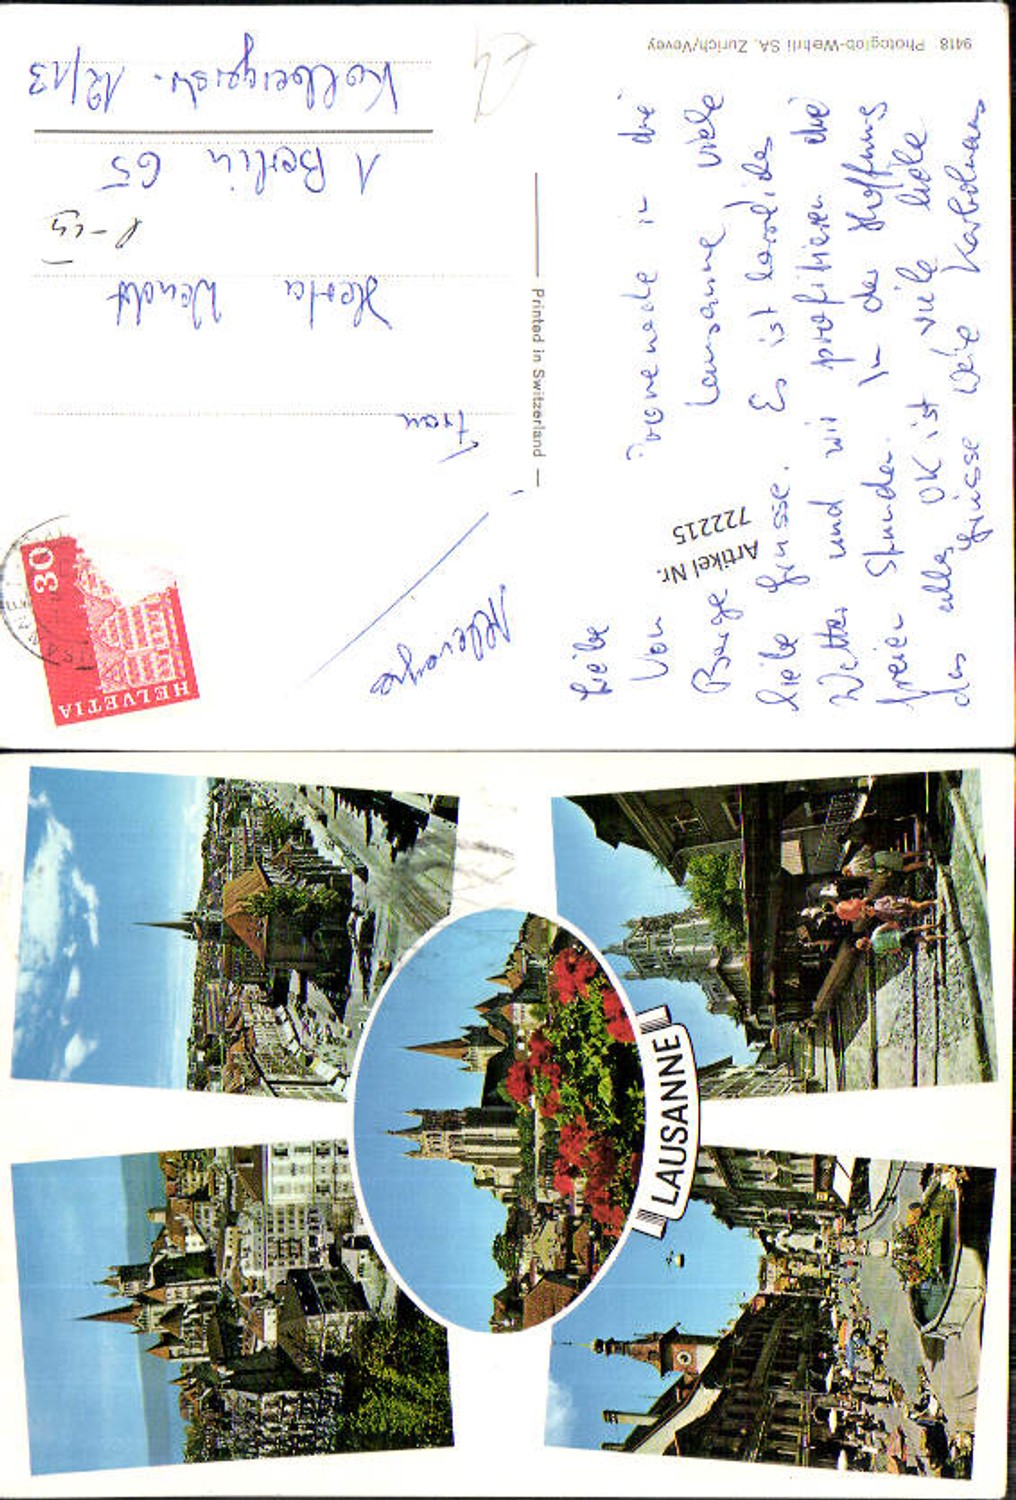 Liebe
Von promenade in die
Berge Lausanne viele
liebe Grüsse. Es ist herrliches
Wetter und wir profitieren die
freien Stunden. In der Hoffnung
das alles OK ist viele liebe
Grüsse
Artikel Nr.
722215
9418 Photoglob-Wehrli SA, Zürich/Vevey
Printed in Switzerland
Frau
Herta Wendt
1 Berlin 65
Kolbergerstr. 12/13
HELVETIA
30
LAUSANNE